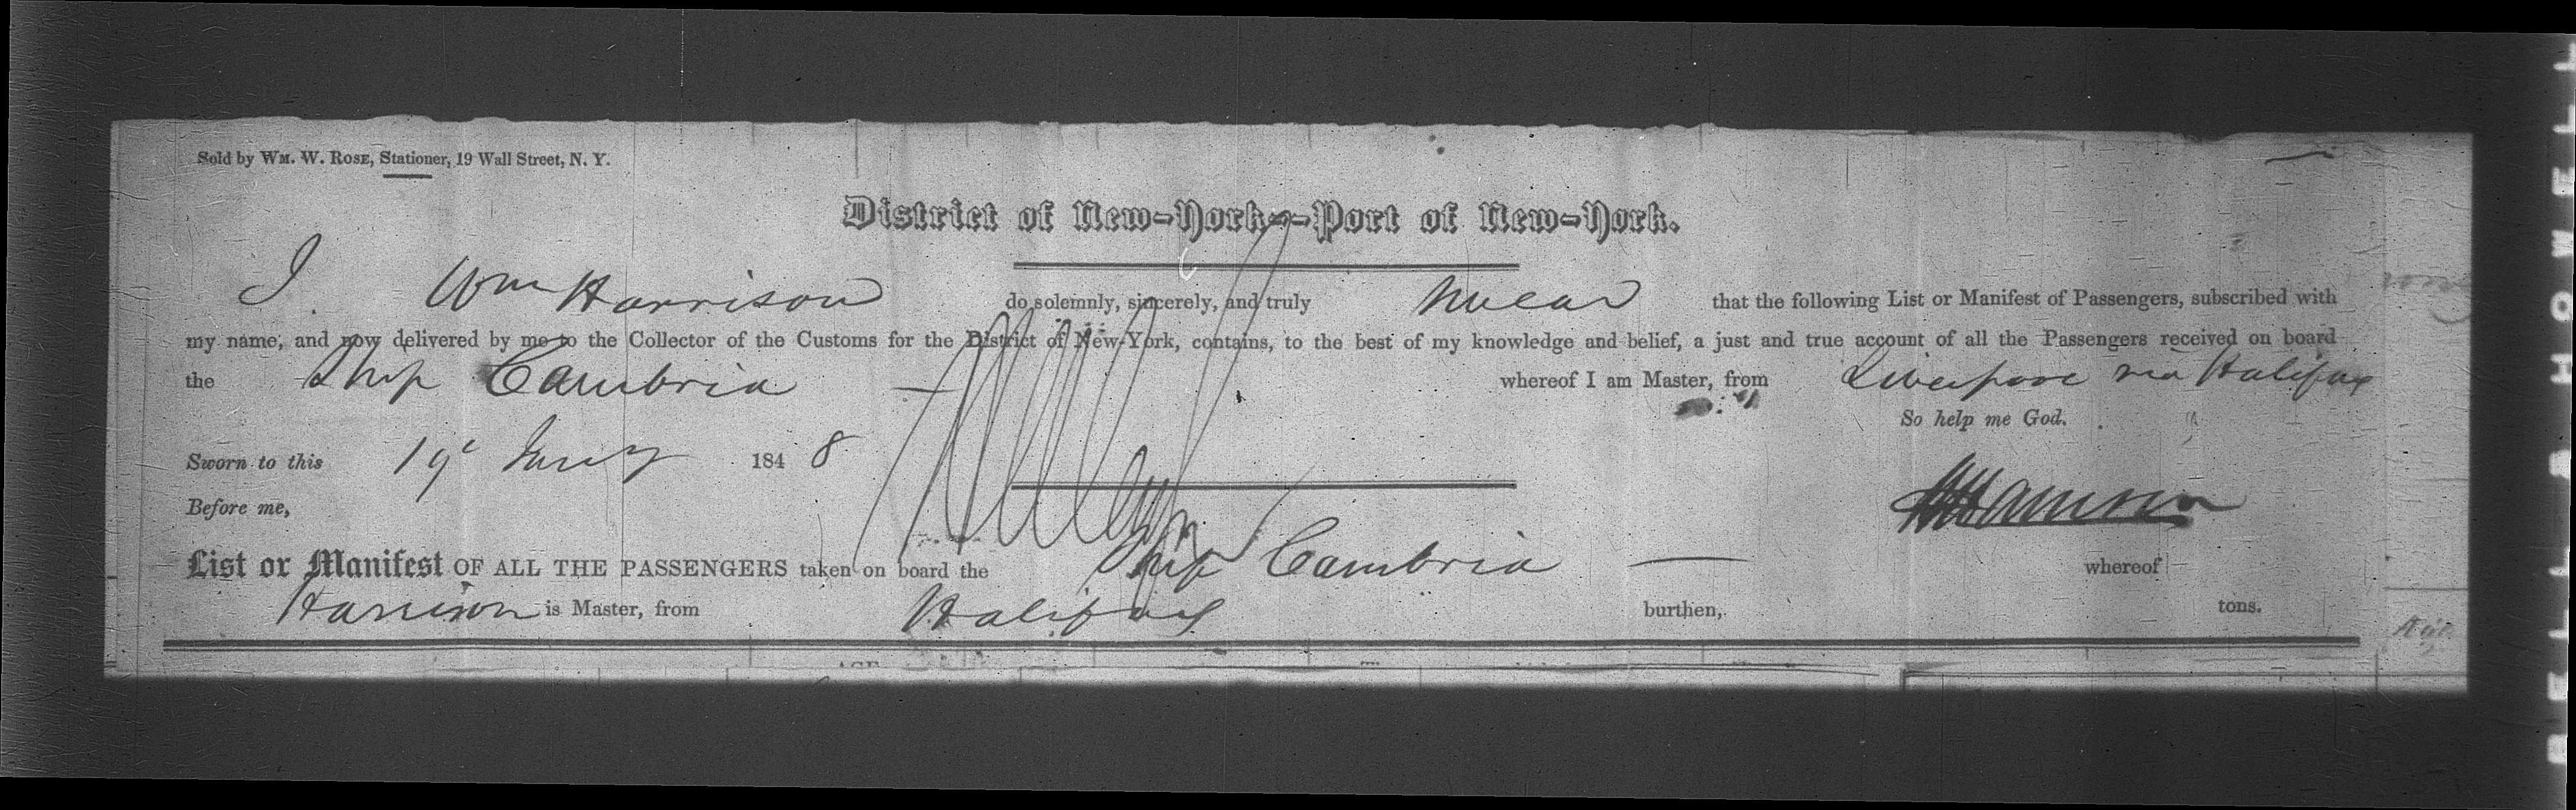 Sold by WM. W. ROSE, Stationer, 19 Wall Street, N. Y.
District of New-York--Port of New-York.
I Wm Harrison do solemnly, sincerely, and truly swear that the following List or Manifest of Passengers, subscribed with
my name, and now delivered by me to the Collector of the Customs for the District of New-York, contains, to the best of my knowledge and belief, a just and true account of all the Passengers received on board
the Ship Cambria — whereof I am Master, from Liverpool via Halifax
So help me God.
Sworn to this 19 184 8
WHarrison
Before me,
List or Manifest OF ALL THE PASSENGERS taken on board the Ship Cambria — whereof
Harrison is Master, from Halifax burthen, tons.
AGE